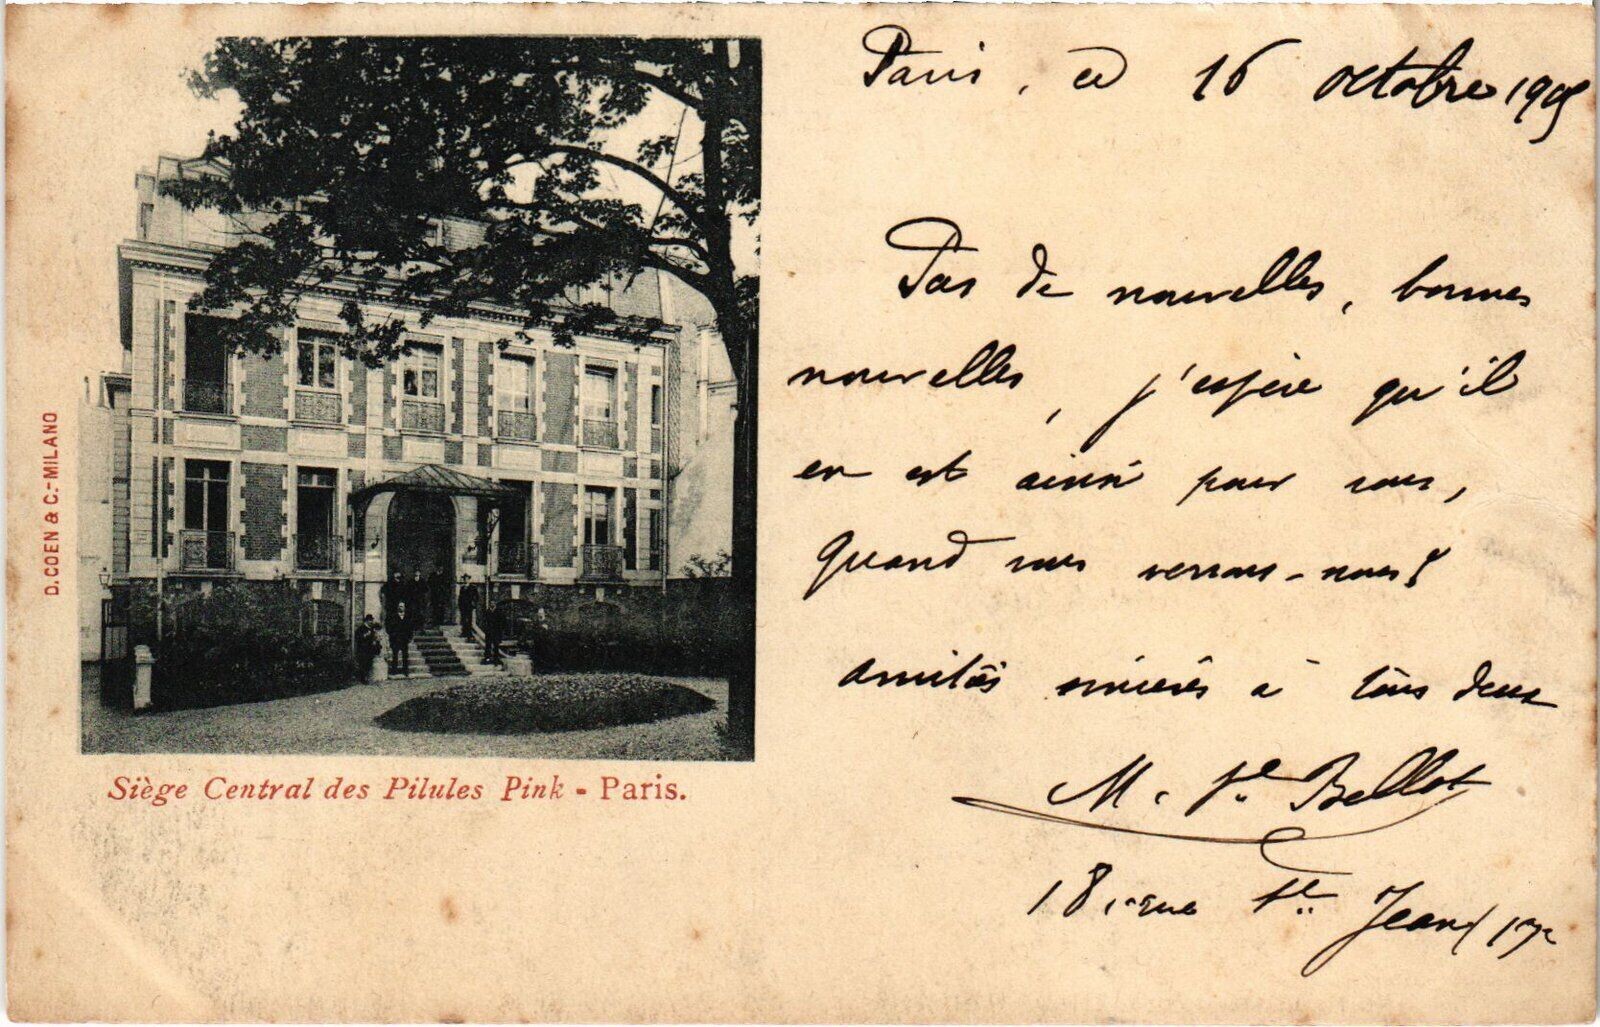 Paris, ce 16 octobre 1905
Pas de nouvelles, bonnes
nouvelles, j'espère qu'il
en est ainsi pour vous,
quand vous verrons-nous?
amitiés sincères à tous deux
M. Bellot
18, rue Jean
D. COEN & C.-MILANO
Siège Central des Pilules Pink - Paris.